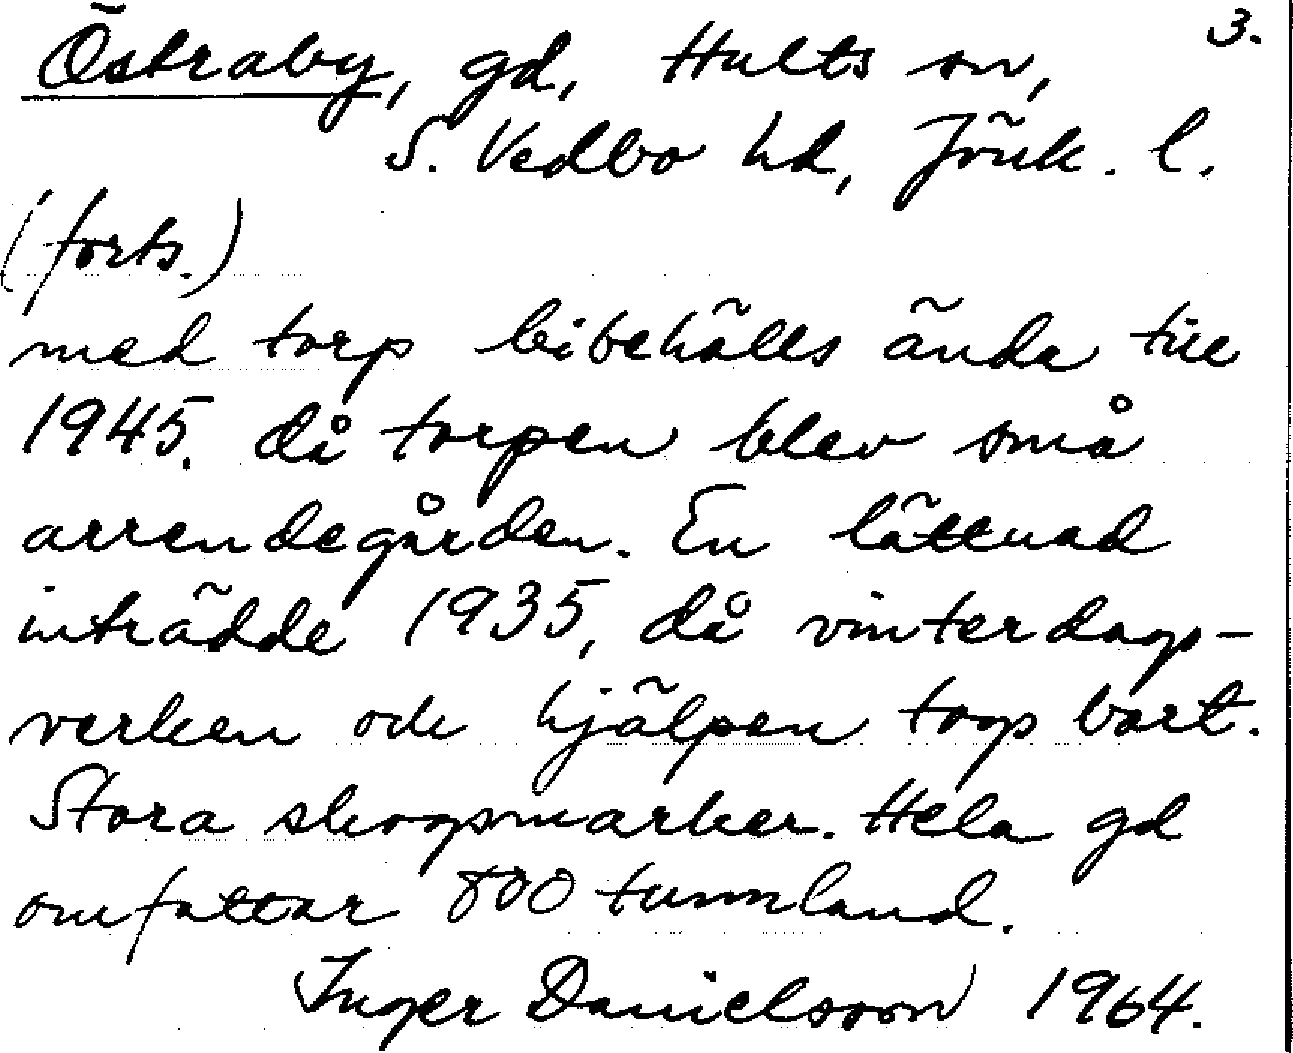 3.
Östraby, gd, Hults sn,
S. Vedbo hd, Jönk. l.
(forts.)
med torp bibehålls ända till
1945. då torpen blev små
arrendegården. En lättnad
inträdde 1935, då vinterdags-
verken och hjälpen togs bort.
Stora skogsmarker. Hela gd
omfattar 800 tunnland.
Inger Danielsson 1964.